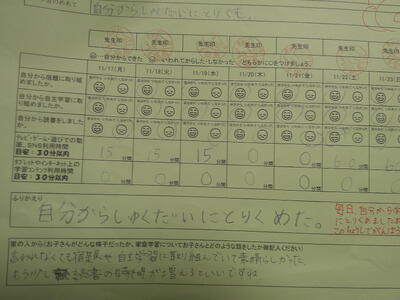 自分からしゅくだいにとりくむ。
先生印 先生印 先生印 先生印 先生印 先生印 先生印
…自分からできた …いわれてからした・しなかった どちらかに○をつけましょう。
11/17(月) 11/18(火) 11/19(水) 11/20(木) 11/21(金) 11/22(土) 11/23
自分から宿題に取り組めましたか。
自分から自主学習に取り組めましたか。
自分から読書をしましたか。
テレビ・ゲーム・遊びでの動画、SNS利用時間
目安:30分以内
15分間 15分間 15分間 0分間 0分間
タブレットやインターネット上の学習コンテンツ利用時間
目安:30分以内
0分間 0分間 0分間 0分間 0分間
ふりかえり
自分からしゅくだいにとりくめた。
毎日、自分から
にとりくめました
このちょうしでがんばろう
家の人から(お子さんがどんな様子だったか、家庭学習についてお子さんとどのような話をしたか御記入ください)
言われなくても宿題や自主学習に取り組んでいて素晴らしかった。
もう少し読書の時間が
増えるといいですね